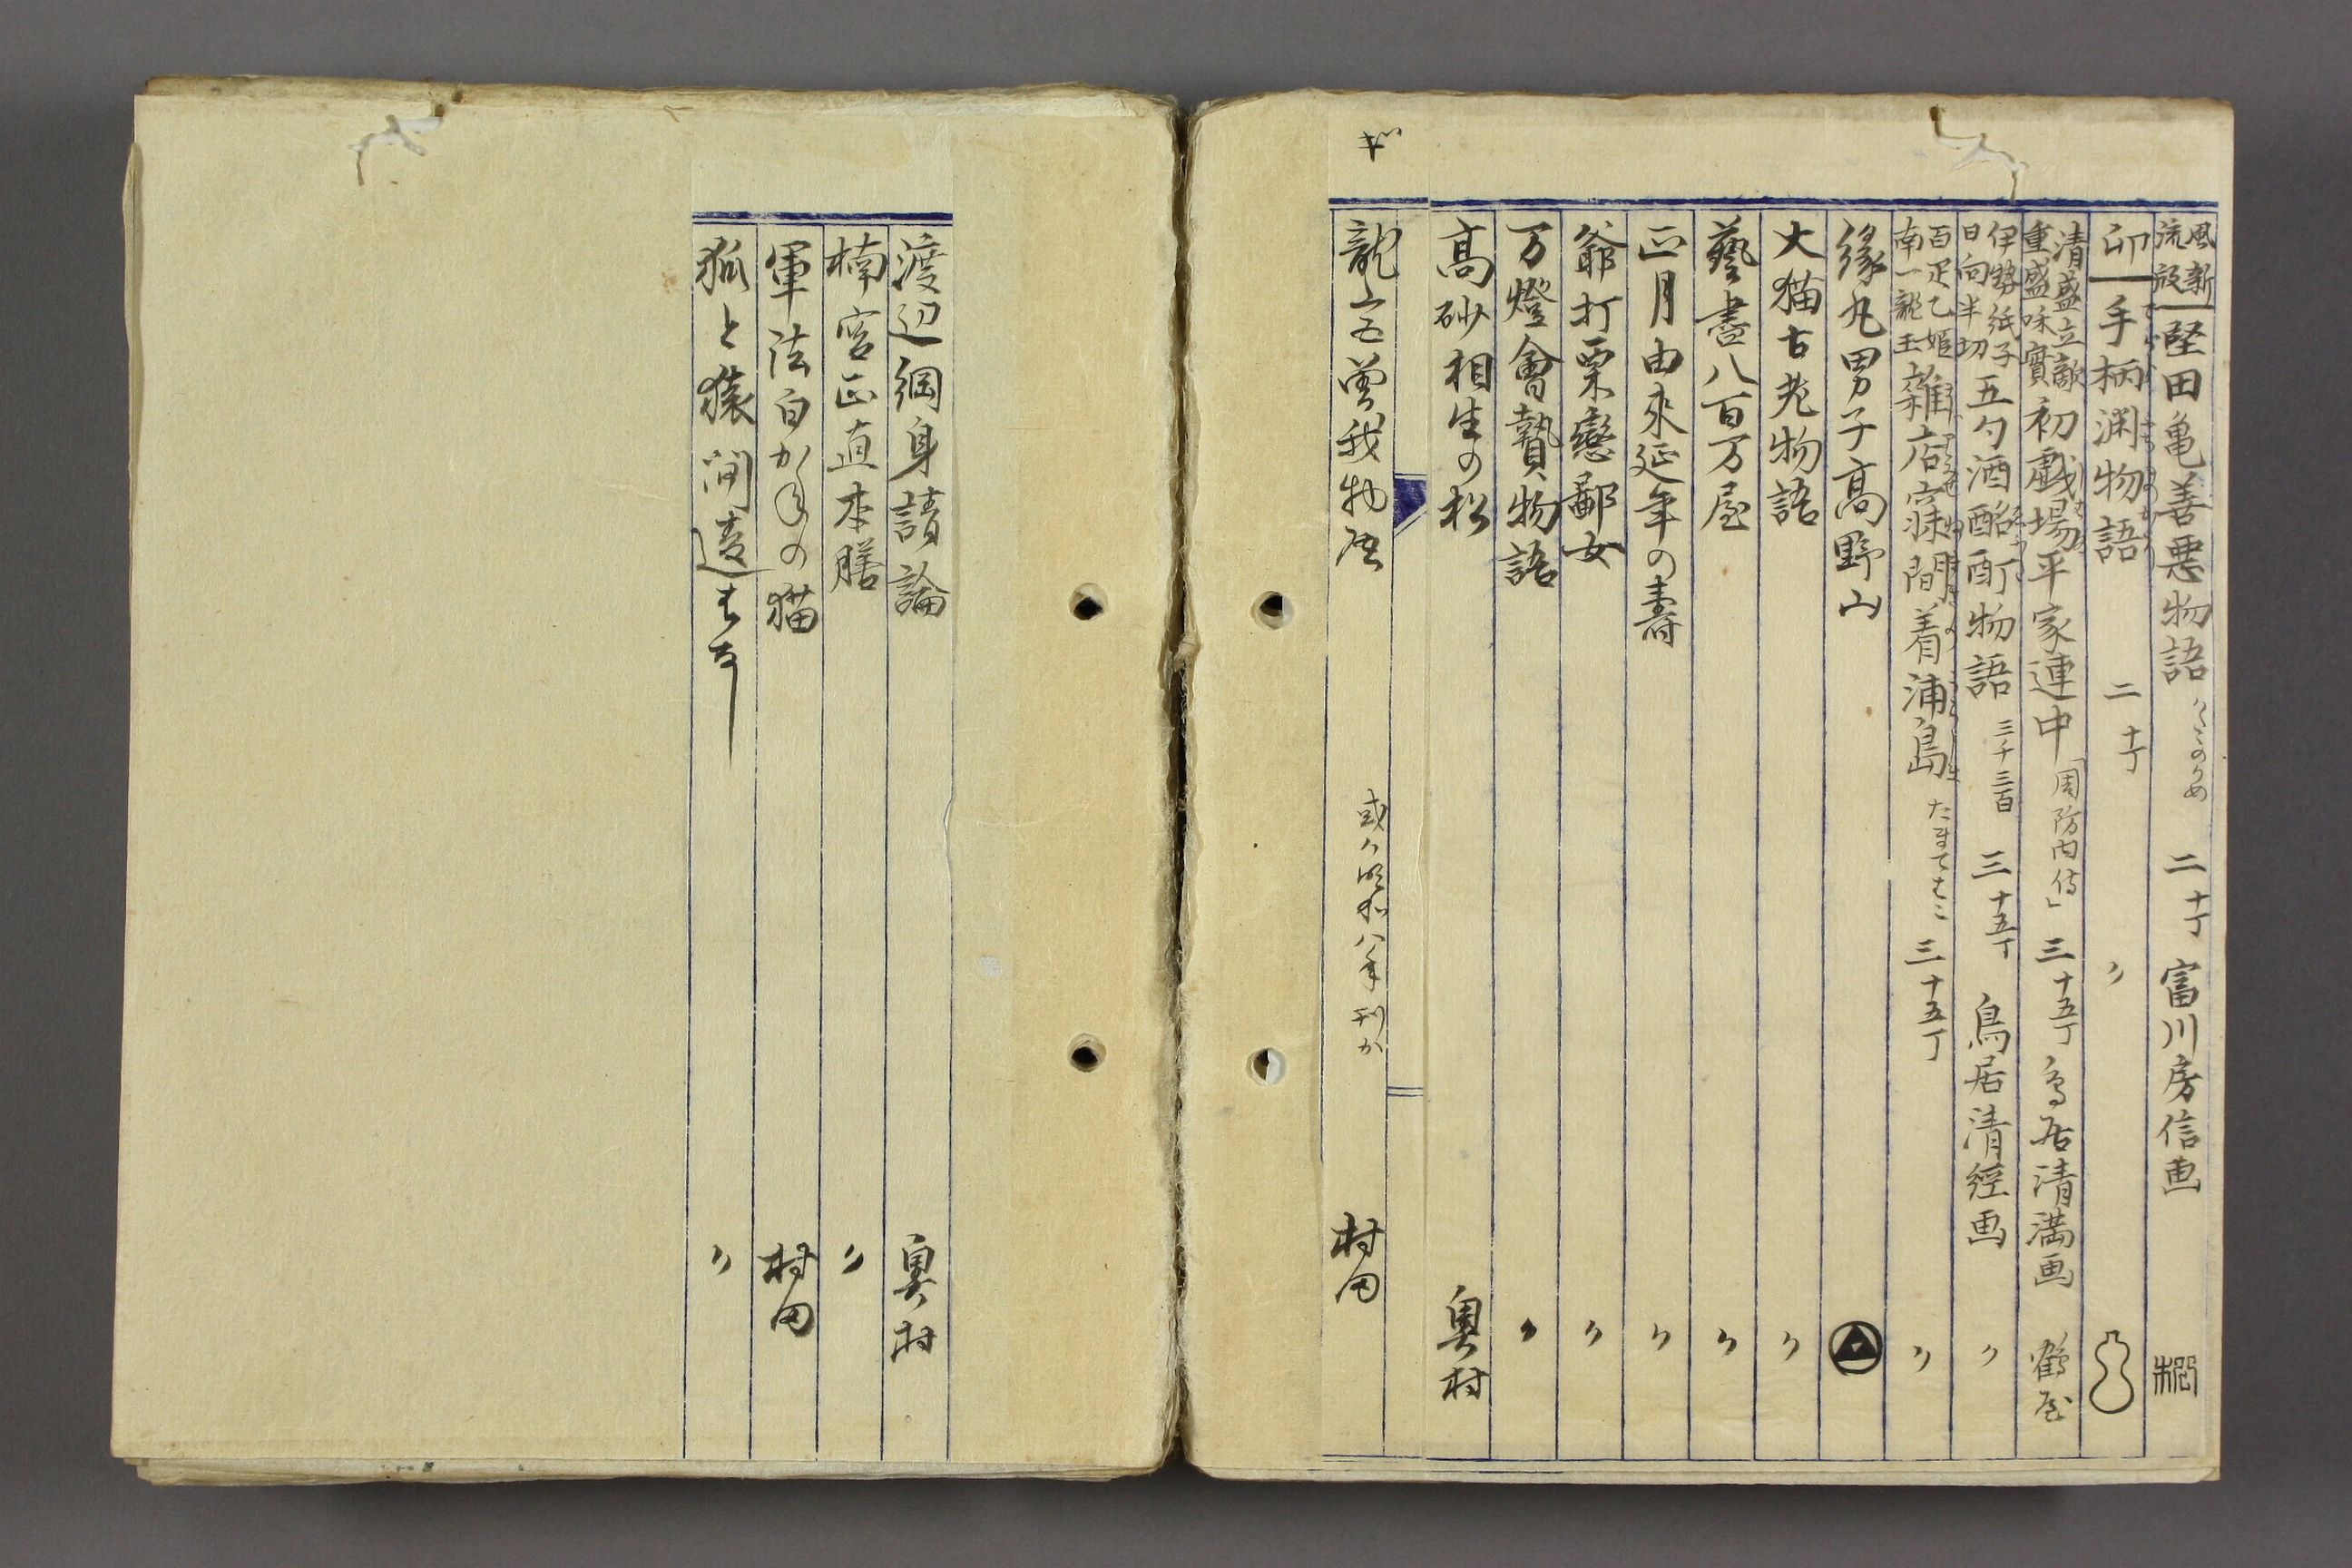 風流 新版 堅田亀善悪物語 二 十丁 富川房信画
卯 手柄渕物語 二 十丁 〃
清盛立敵 重盛味實 初戯場平家連中 「周防内侍」 三 十五丁 鳥居清満画 鶴屋
伊勢紙子 日向半切 五勺酒酩酊物語 三千三百 三 十五丁 鳥居清経画 〃
百足乙姫 南一龍王 雑店寐間着浦島 たまてはこ 三 十五丁 〃
縁丸男子髙野山
大猫古老物語 〃
藝書八百万屋 〃
正月由來延年の壽 〃
爺打栗戀鄙女 〃
万燈會贄物語 〃
髙砂相生の松 奥村
龍宮曽我物語 或ハ明和八年刊か 村田
渡辺綱身請論 奥村
楠宮正直本膳 〃
軍法白かねの猫 村田
狐と猿間違はなし 〃